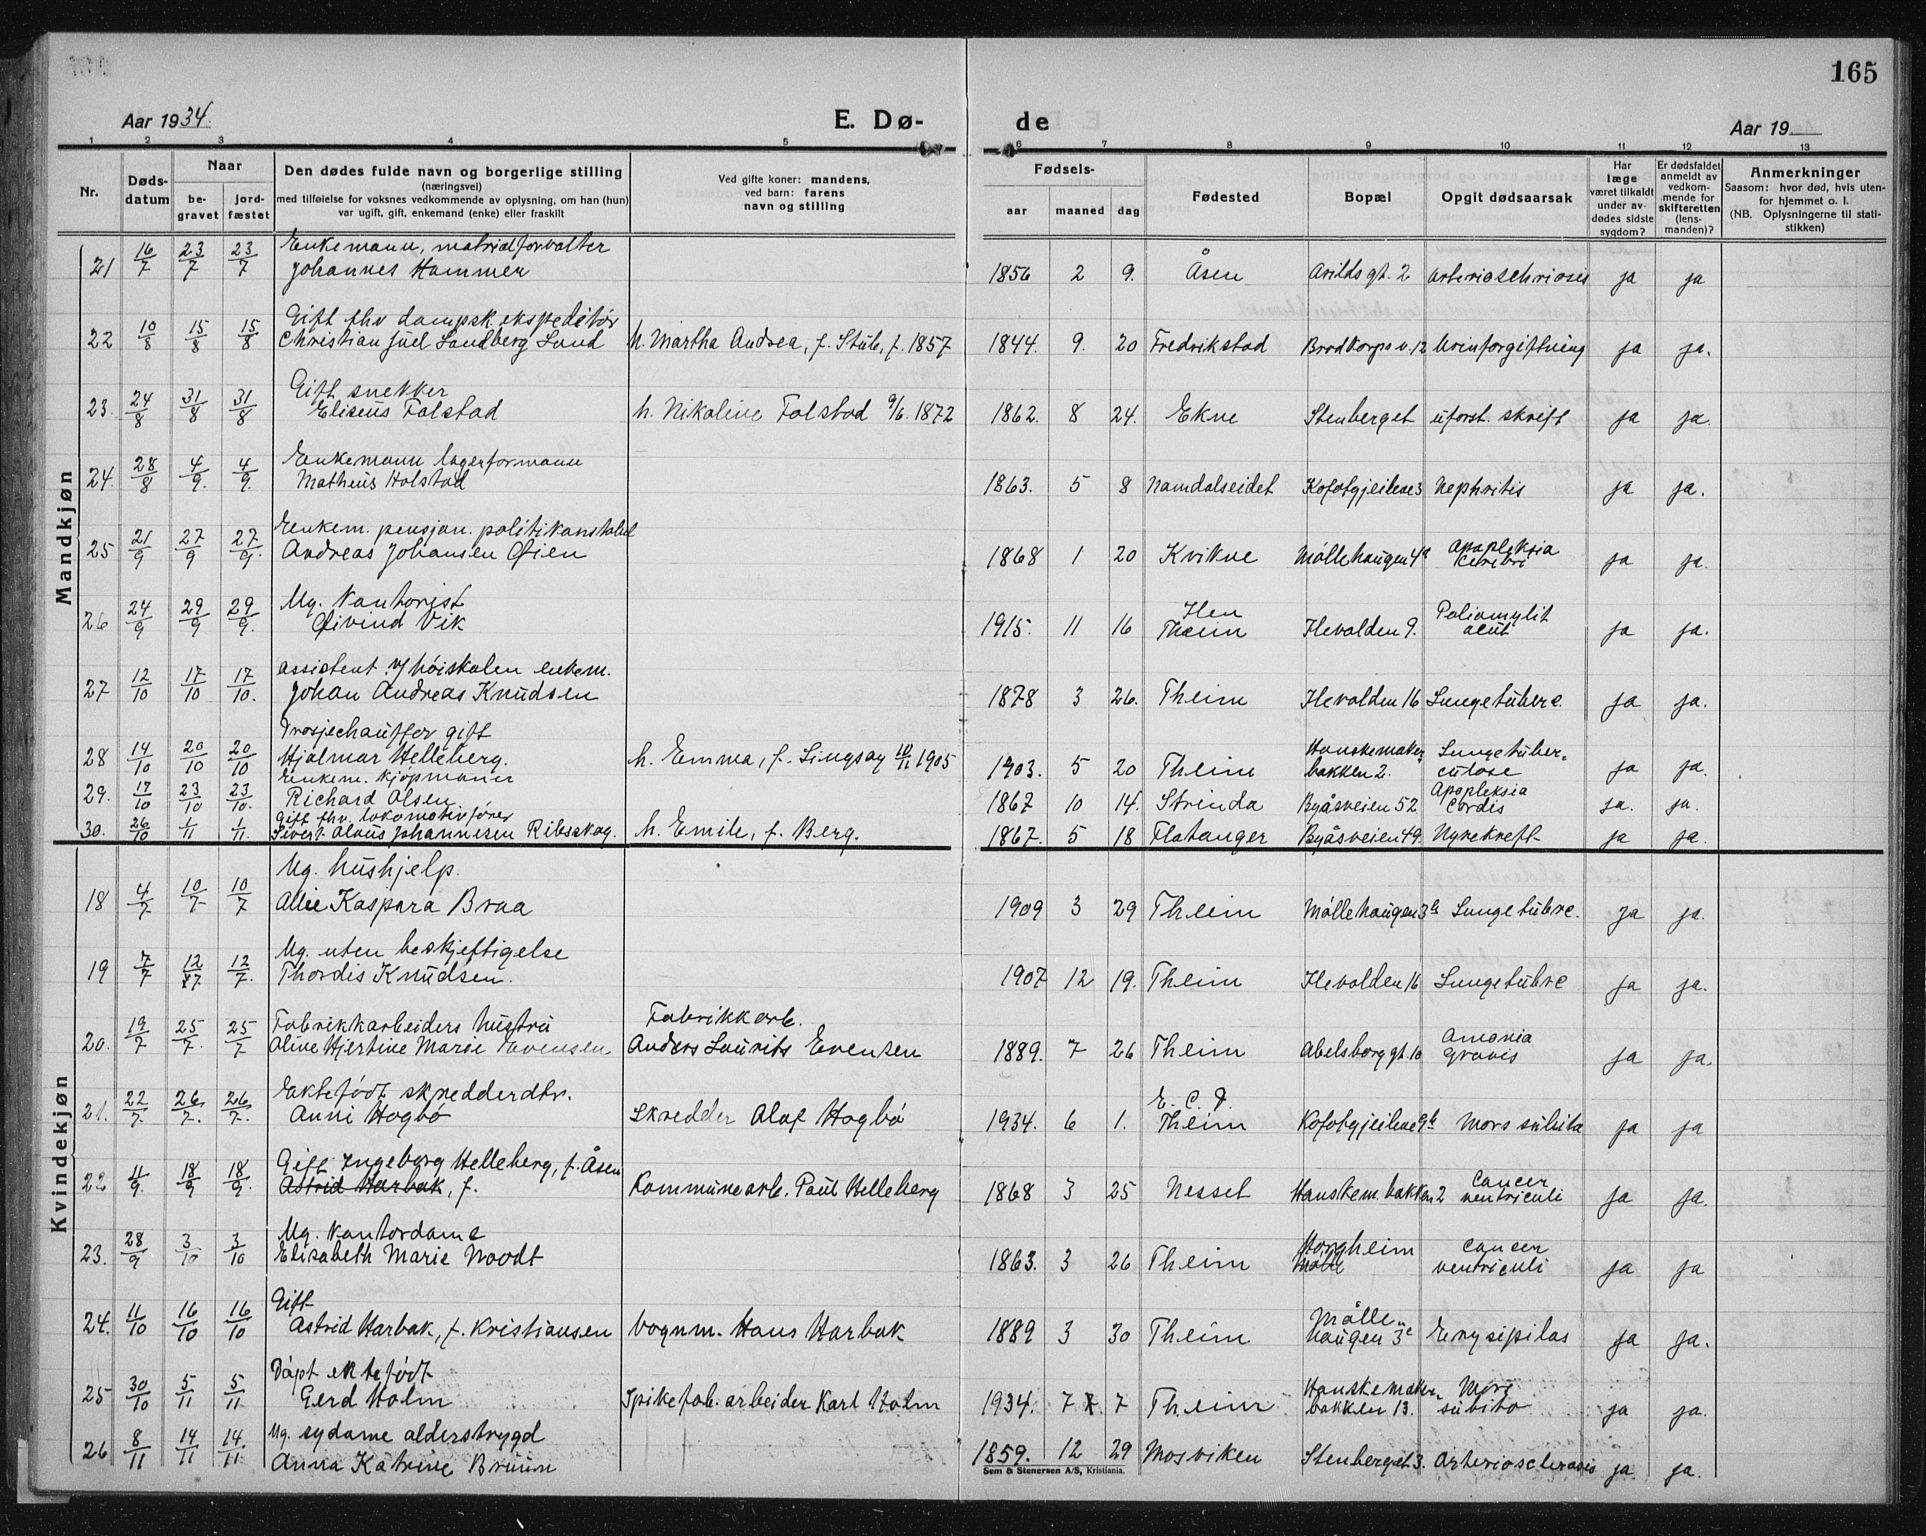 165
Aar 1934.
E. Dø-
de
Aar 19
1 2 3 4 5 6 7 8 9 10 11 12 13
Nr.
Døds-
datum
Naar
be-
gravet
jord-
fæstet
Den dødes fulde navn og borgerlige stilling
(næringsvei)
med tilføielse for voksnes vedkommende av oplysning, om han (hun)
var ugift, gift, enkemand (enke) eller fraskilt
Ved gifte koner: mandens,
ved barn: farens
navn og stilling
Fødsels-
aar maaned dag
Fødested
Bopæl
Opgit dødsaarsak
Har
læge
været tilkaldt
under av-
dødes sidste
sygdom?
Er dødsfaldet
anmeldt av
vedkom-
mende for
skifteretten
(lens-
manden)?
Anmerkninger
Saasom: hvor død, hvis uten-
for hjemmet o. l.
(NB. Oplysningerne til stati-
stikken)
Mandkjøn
Enkemann, matrialforvalter
21 16/7 23/7 23/7 Johannes Hammer 1856 2 9. Åsen Arildsgt. 2 ja ja
Gift fhv dampsk. ekspeditør
22 10/8 15/8 15/8 Christian Juel Sandberg Lund h. Martha Andrea, f. Stub, f. 1857 1844. 9. 20 Fredrikstad Brodkorps v. 12 Urinforgiftning ja ja.
Gift snekker
23. 24/8 31/8 31/8 Eliseus Falstad h. Nikoline Falstad 9/6. 1872 1862. 8 24. Ekne Stenberget uforst. skrift ja ja.
Enkemann lagerformann
24. 28/8 4/9. 4/9. Matheus Holstad 1863. 5 8 Namdalseidet Kofotgjeilene 3 Nephritis ja ja.
Enkem. pensjon. politikonstabel
25 21/9 27/9 27/9. Andreas Johansen Øien 1868 1 20 Kvikne Møllehaugen 4a Apopleksia
cerebri ja ja.
Ug. kontorist
26 24/9 29/9 29/9. Øivind Vik 1915. 11 16 Ilen
Theim Ilevolden 9. Poliomylit
acut ja ja.
assistent v/ høiskolen enkem.
27 12/10 17/10 17/10. Johan Andreas Knudsen 1878 3 26. Theim Ilevolden 16 Lungetuberc. ja ja.
Drosjechauffør gift
28 14/10 20/10 20/10 Hjalmar Helleberg. h. Emma, f. Singsay 10/11 1905 1903. 5 20 Theim Hanskemaker
bakken 2. Lungetuber=
culose ja ja.
Enkem. kjøpmann
29. 17/10 23/10 23/10. Richard Olsen 1867 10 14. Strinda Byåsveien 52. Apopleksia
Cordis ja. ja.
Gift fhv. lokomotivfører
30. 26/10 1/11 1/11. Sivert Olaus Johannesen Ribsskog. h. Emilie, f. Berg. 1867. 5 18 Flatanger Byåsveien 49. Nyrekreft ja ja.
Kvindekjøn
Ug. hushjelp.
18 4/7 10/7 10/7 Allie Kaspara Braa 1909 3 29 Theim Møllehaugen 3b Lungetubrc. ja ja.
Ug. uten beskjeftigelse
19 7/7 12/7 12/7. Thordis Knudsen. 1907 12 19. Theim Ilevolden 16 Lungetubrc ja ja.
Fabrikkarbeiders hustru Fabrikkarb.
20. 19/7 25/7. 25/7 Aline Hjertine Marie Evensen Anders Laurits Evensen 1889. 7 26 Theim Abelsborg gt. 10 Amonia
gravis ja ja.
Ektefødt skredderdtr.
21. 22/7. 26/7. 26/7. Anni Hogbø Skredder Olaf Hogbø 1934. 6 1. E. C. D.
Theim Kofotgjeilene 9b Mors subita ja ja
Gift Ingeborg Helleberg, f. Åsen
22 11/9. 18/9 18/9. Astrid Harbak, f. Kommunearb. Paul Helleberg 1868 3 25 Nesset Hanskem.bakken 2 Cancer
ventriculi ja ja.
Ug. kontordame
23. 28/9 3/10 3/10 Elisabeth Marie Woodt 1863. 3 26 Theim Horgheim
Mølle Cancer
ventriculi ja ja
Gift
24. 11/10 16/10 16/10 Astrid Harbak, f. Kristiansen vognm. Hans Harbak 1889 3 30 Theim Mølle-
haugen 3c Erysipilas ja ja.
Døpt ektefødt
25 30/10 5/11 5/11 Gerd Holm Spikefab. arbeider Karl Holm 1934. 7 7 Theim Hanskemaker-
bakken 13. Mors
subito ja ja.
Ug. sydame alderstrygd
26 8/11 14/11 14/11. Anna Katrine Bruun 1859. 12 29 Mosviken Stenberget 3. Arteriosclerosis ja. ja.
Sem & Stenersen A/S, Kristiania.